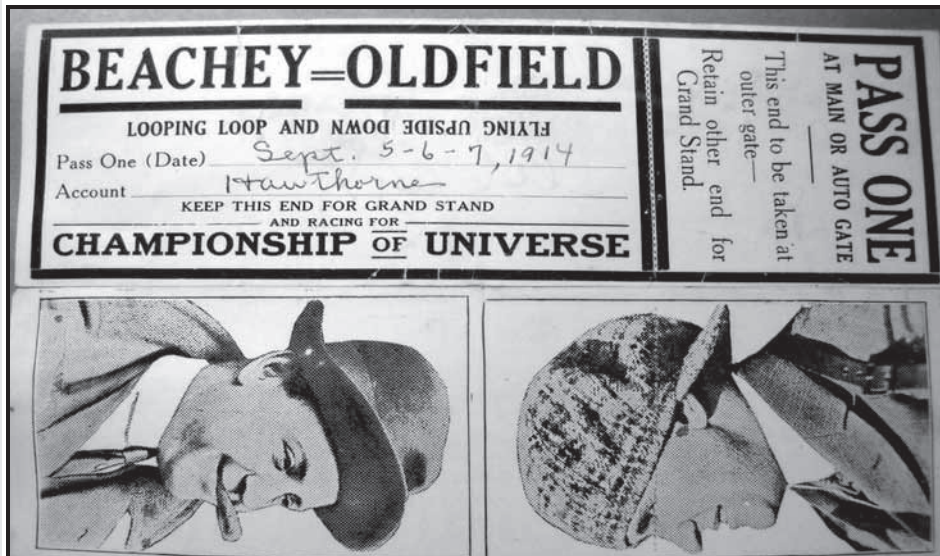 BEACHEY=OLDFIELD
FLYING UPSIDE DOWN AND LOOPING LOOP
Pass One (Date) Sept. 5-6-7, 1914
Account Hawthorne
KEEP THIS END FOR GRAND STAND
AND RACING FOR
CHAMPIONSHIP OF UNIVERSE
PASS ONE
AT MAIN OR AUTO GATE
This end to be taken at
outer gate—
Retain other end for
Grand Stand.